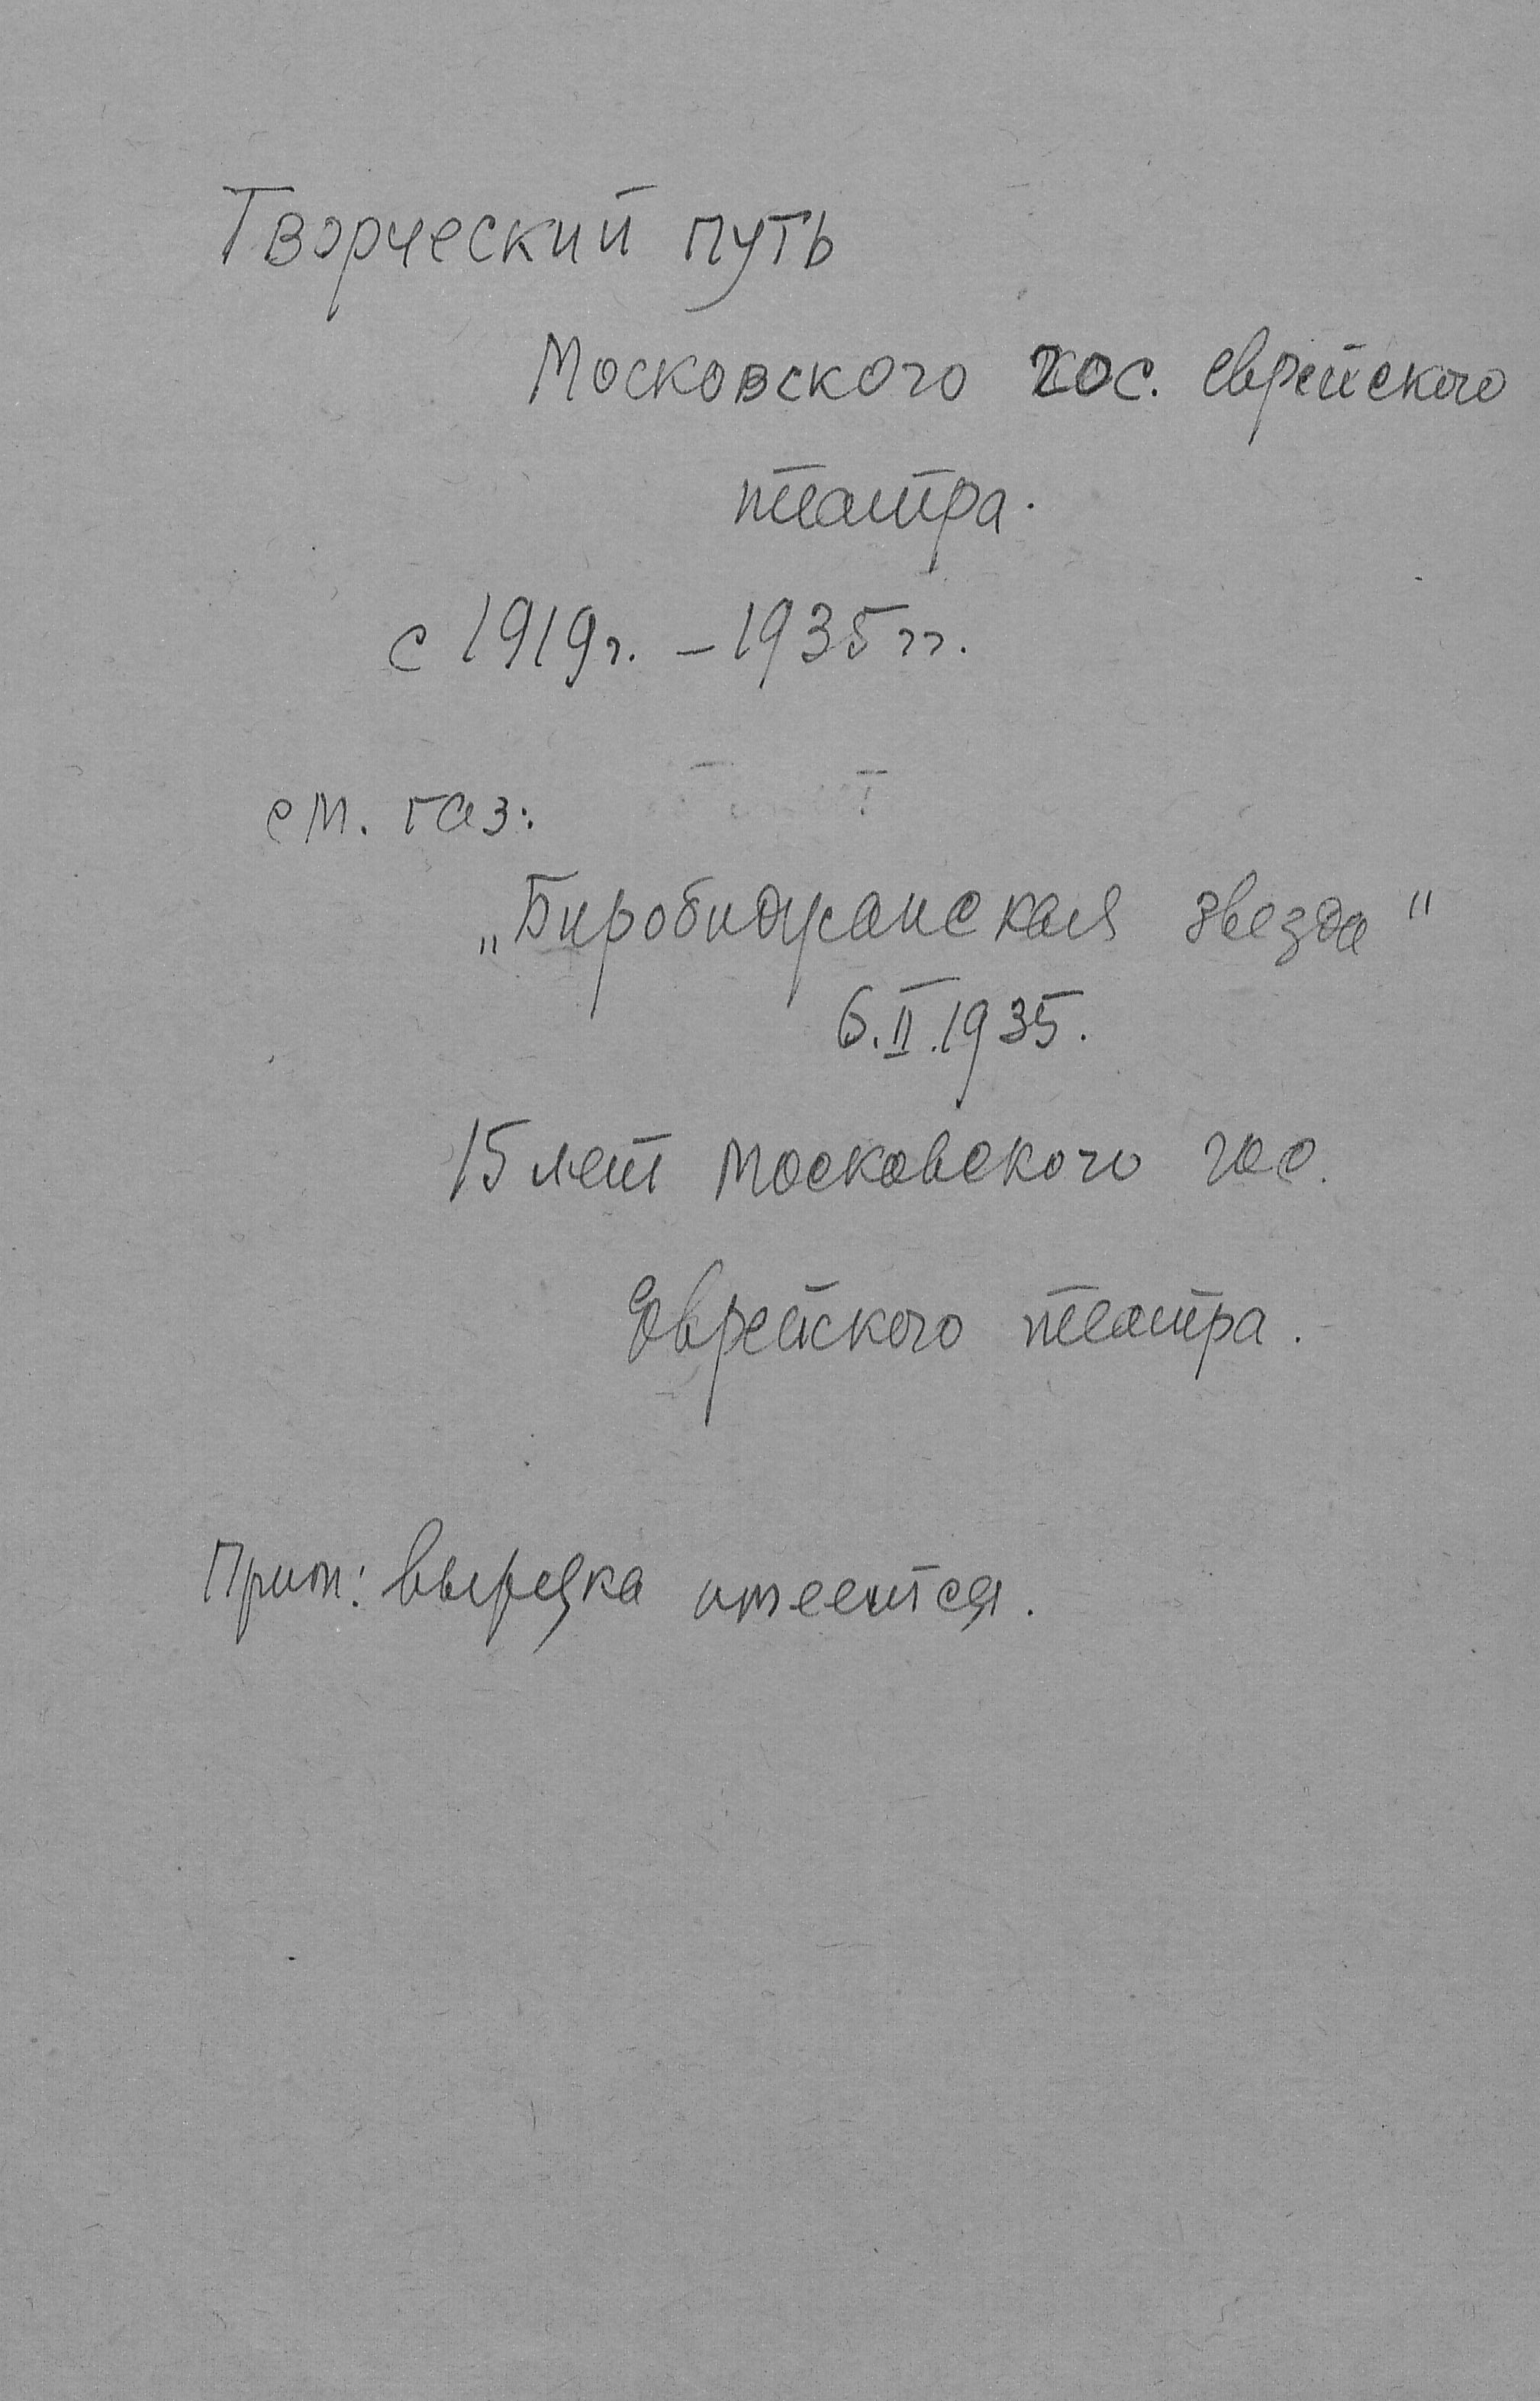 Творческий путь
Московского гос. еврейского
театра.
с 1919г. – 1935 гг.
см. газ:
„Биробиджанская звезда"
6.II.1935.
15 лет Московского гос.
Еврейского театра.
Прим: вырезка имеется.